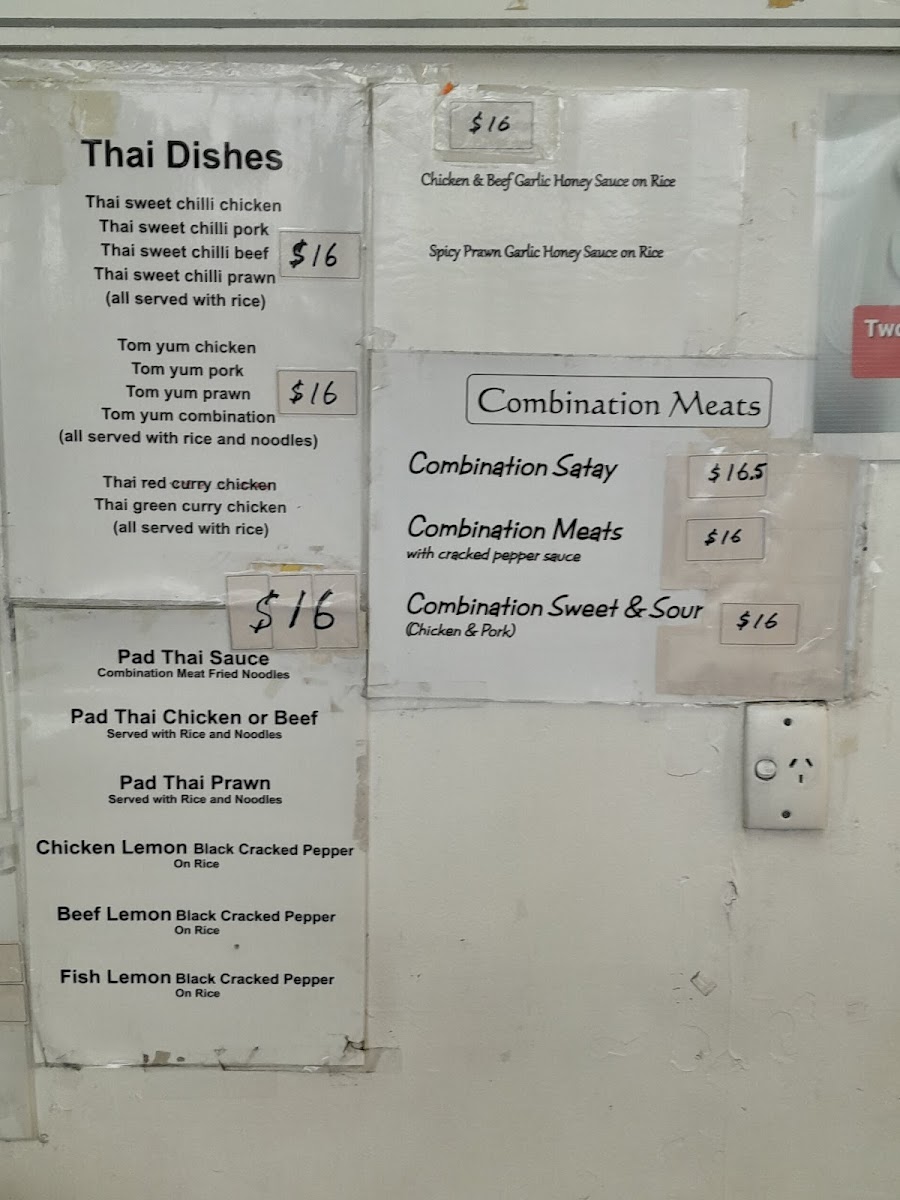 Thai Dishes
Thai sweet chilli chicken
Thai sweet chilli pork
Thai sweet chilli beef
$16
Thai sweet chilli prawn
(all served with rice)
Tom yum chicken
Tom yum pork
Tom yum prawn
$16
Tom yum combination
(all served with rice and noodles)
Thai red curry chicken
Thai green curry chicken
(all served with rice)
$16
Pad Thai Sauce
Combination Meat Fried Noodles
Pad Thai Chicken or Beef
Served with Rice and Noodles
Pad Thai Prawn
Served with Rice and Noodles
Chicken Lemon Black Cracked Pepper
On Rice
Beef Lemon Black Cracked Pepper
On Rice
Fish Lemon Black Cracked Pepper
On Rice
$16
Chicken & Beef Garlic Honey Sauce on Rice
Spicy Prawn Garlic Honey Sauce on Rice
Combination Meats
Combination Satay $16.5
Combination Meats $16
with cracked pepper sauce
Combination Sweet & Sour $16
(Chicken & Pork)